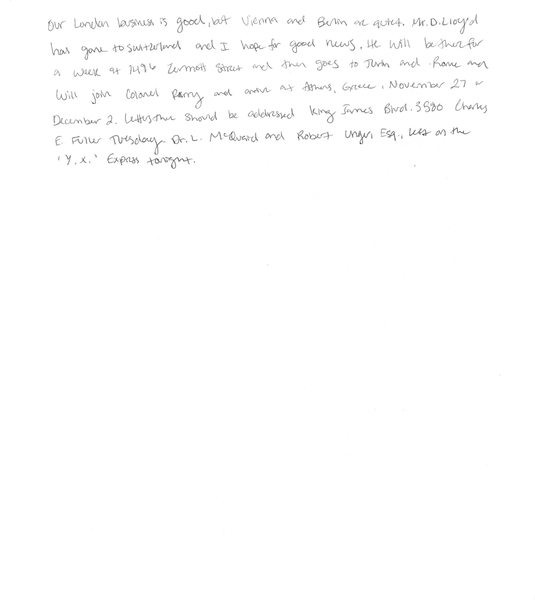 Our London business is good, but Vienna and Berlin are quiet. Mr. D. Lloyd
has gone to Switzerland and I hope for good news. He will be there for
a week at 1496 Zermott Street and then goes to Turin and Rome and
will join Colonel Parry and arrive at Athens, Greece, November 27 or
December 2. Letters there should be addressed King James Blvd. 3580 Charles
E. Fuller Tuesday. Dr. L. McQuaid and Robert Unger, Esq., left on the
'Y.X.' Express tonight.